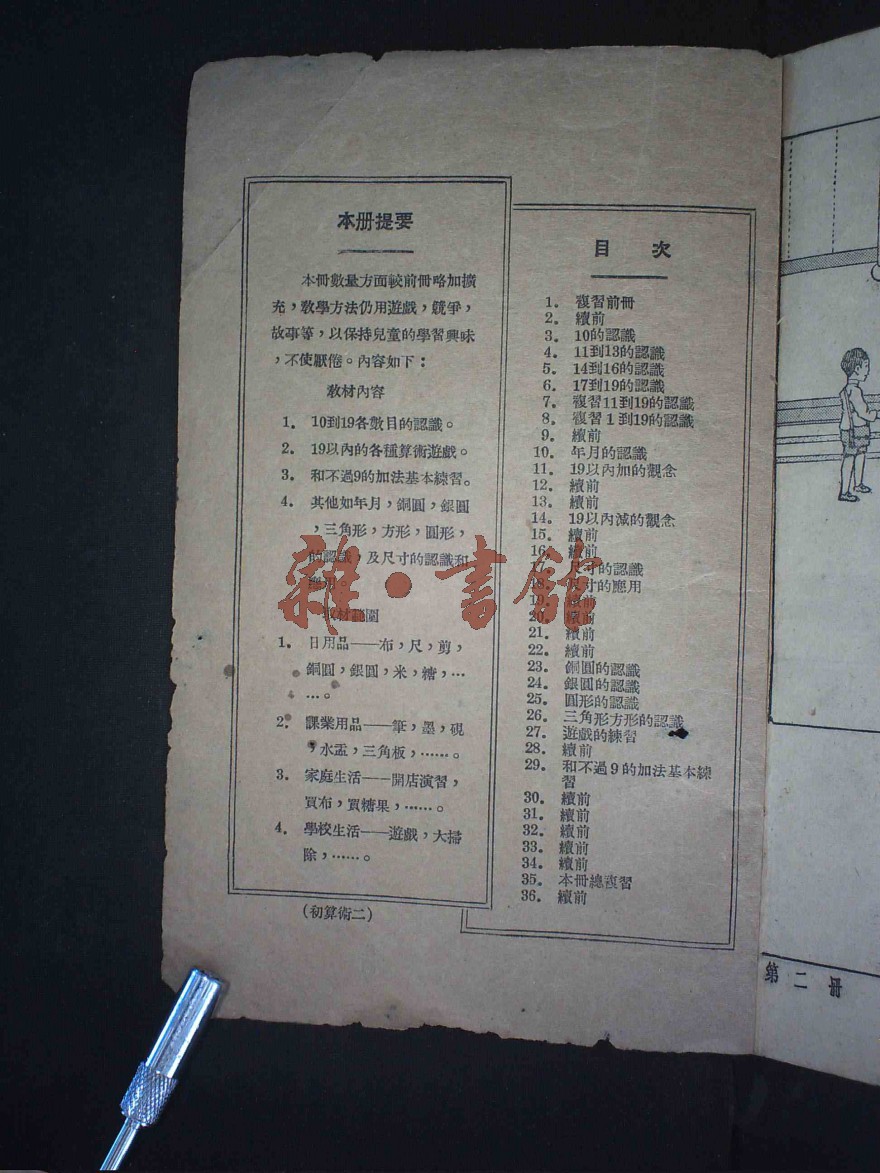 本册提要
本冊數量方面較前冊略加擴
充，教學方法仍用遊戲，競爭，
故事等，以保持兒童的學習興味
，不使厭倦。內容如下：
敎材內容
1. 10到19各數目的認識。
2. 19以內的各種算術遊戲。
3. 和不過9的加法基本練習。
4. 其他如年月，銅圓，銀圓
，三角形，方形，圓形，
的認識，及尺寸的認識和
應用。
敎材範圍
1. 日用品——布，尺，剪，
銅圓，銀圓，米，糖，…
…。
2. 課業用品——筆，墨，硯
，水盂，三角板，……。
3. 家庭生活——開店演習，
買布，買糖果，……。
4. 學校生活——遊戲，大掃
除，……。
(初算術二)
目 次
1. 複習前冊
2. 續前
3. 10的認識
4. 11到13的認識
5. 14到16的認識
6. 17到19的認識
7. 複習11到19的認識
8. 複習1到19的認識
9. 續前
10. 年月的認識
11. 19以內加的觀念
12. 續前
13. 續前
14. 19以內減的觀念
15. 續前
16. 續前
17. 尺寸的認識
18. 尺寸的應用
19. 續前
20. 續前
21. 續前
22. 續前
23. 銅圓的認識
24. 銀圓的認識
25. 圓形的認識
26. 三角形方形的認識
27. 遊戲的練習
28. 續前
29. 和不過9的加法基本練
習
30. 續前
31. 續前
32. 續前
33. 續前
34. 續前
35. 本冊總複習
36. 續前
第二冊
雜·書館